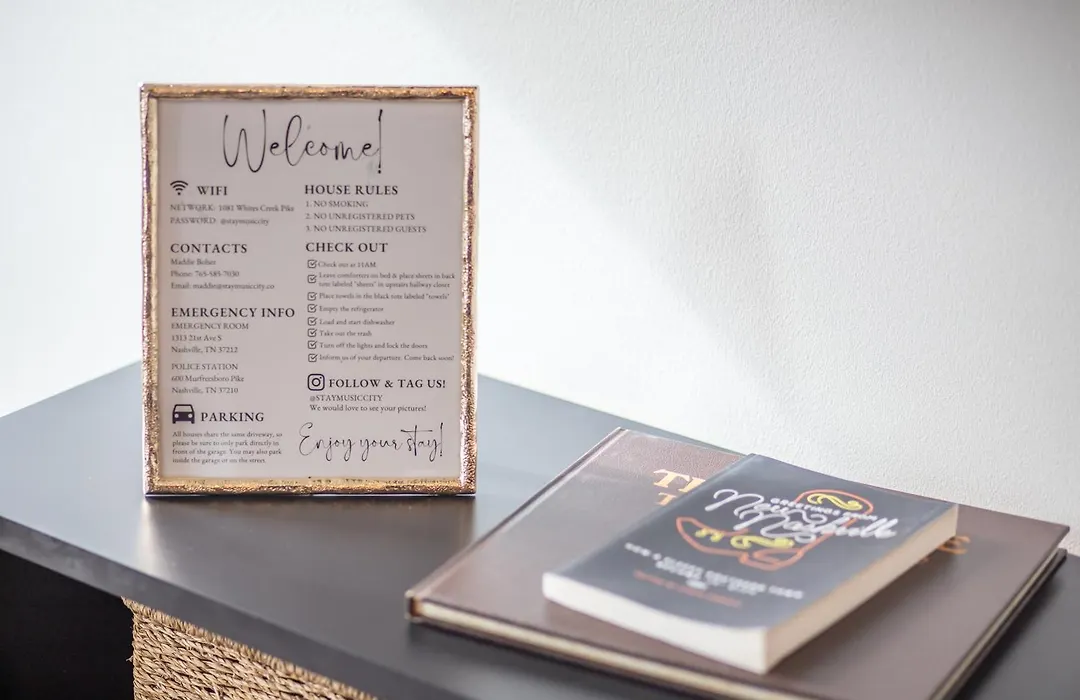 Welcome!
WIFI
NETWORK: 1081 Whites Creek Pike
PASSWORD: @staymusiccity
CONTACTS
Maddie Bolser
Phone: 765-585-7030
Email: maddie@staymusiccity.co
EMERGENCY INFO
EMERGENCY ROOM
1313 21st Ave S
Nashville, TN 37212
POLICE STATION
600 Murfreesboro Pike
Nashville, TN 37210
PARKING
All houses share the same driveway, so
please be sure to only park directly in
front of the garage. You may also park
inside the garage or on the street.
HOUSE RULES
1. NO SMOKING
2. NO UNREGISTERED PETS
3. NO UNREGISTERED GUESTS
CHECK OUT
Check out at 11AM
Leave comforters on bed & place sheets in back
tote labeled "sheets" in upstairs hallway closet
Place towels in the black tote labeled "towels"
Empty the refrigerator
Load and start dishwasher
Take out the trash
Turn off the lights and lock the doors
Inform us of your departure. Come back soon!
FOLLOW & TAG US!
@STAYMUSICCITY
We would love to see your pictures!
Enjoy your stay!
GREETINGS FROM
New Nashville